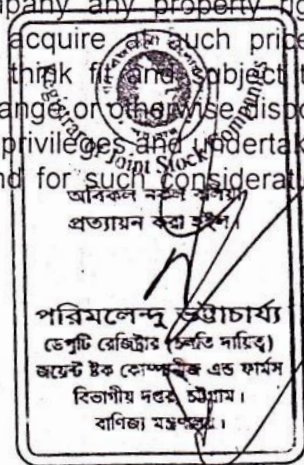 pany any property
acquire all such price
think fit and subject t
ange or otherwise dispo
privileges and undertak
nd for such considerat
Registrar of Joint Stock Companies
অবিকল নকল বলিয়া
প্রত্যায়ন করা হইল।
পরিমলেন্দু ভট্টাচার্য্য
ডেপুটি রেজিষ্ট্রার (চলতি দায়িত্ব)
জয়েন্ট ষ্টক কোম্পানীজ এন্ড ফার্মস
বিভাগীয় দপ্তর, চট্টগ্রাম।
বাণিজ্য মন্ত্রণালয়।